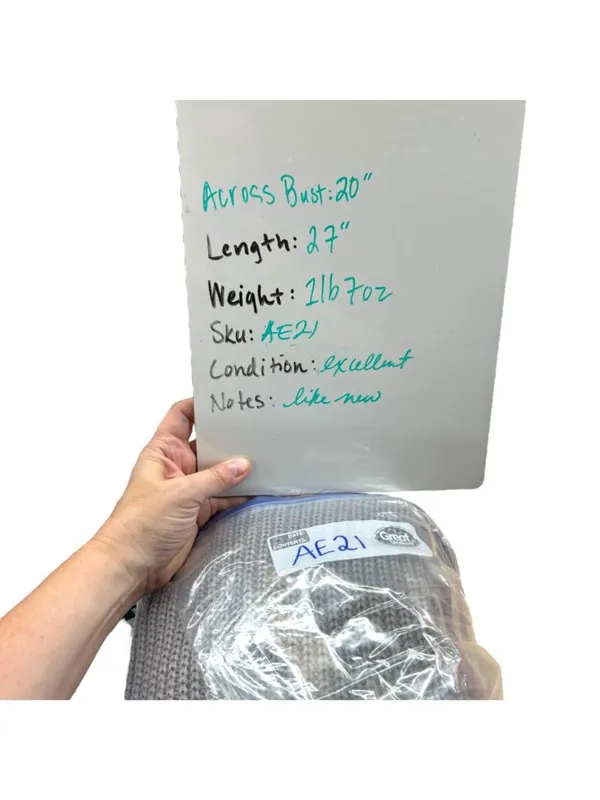 Across Bust: 20"
Length: 27"
Weight: 1lb 7oz
Sku: AE21
Condition: excellent
Notes: like new
DATE
CONTENTS
Great
AE21